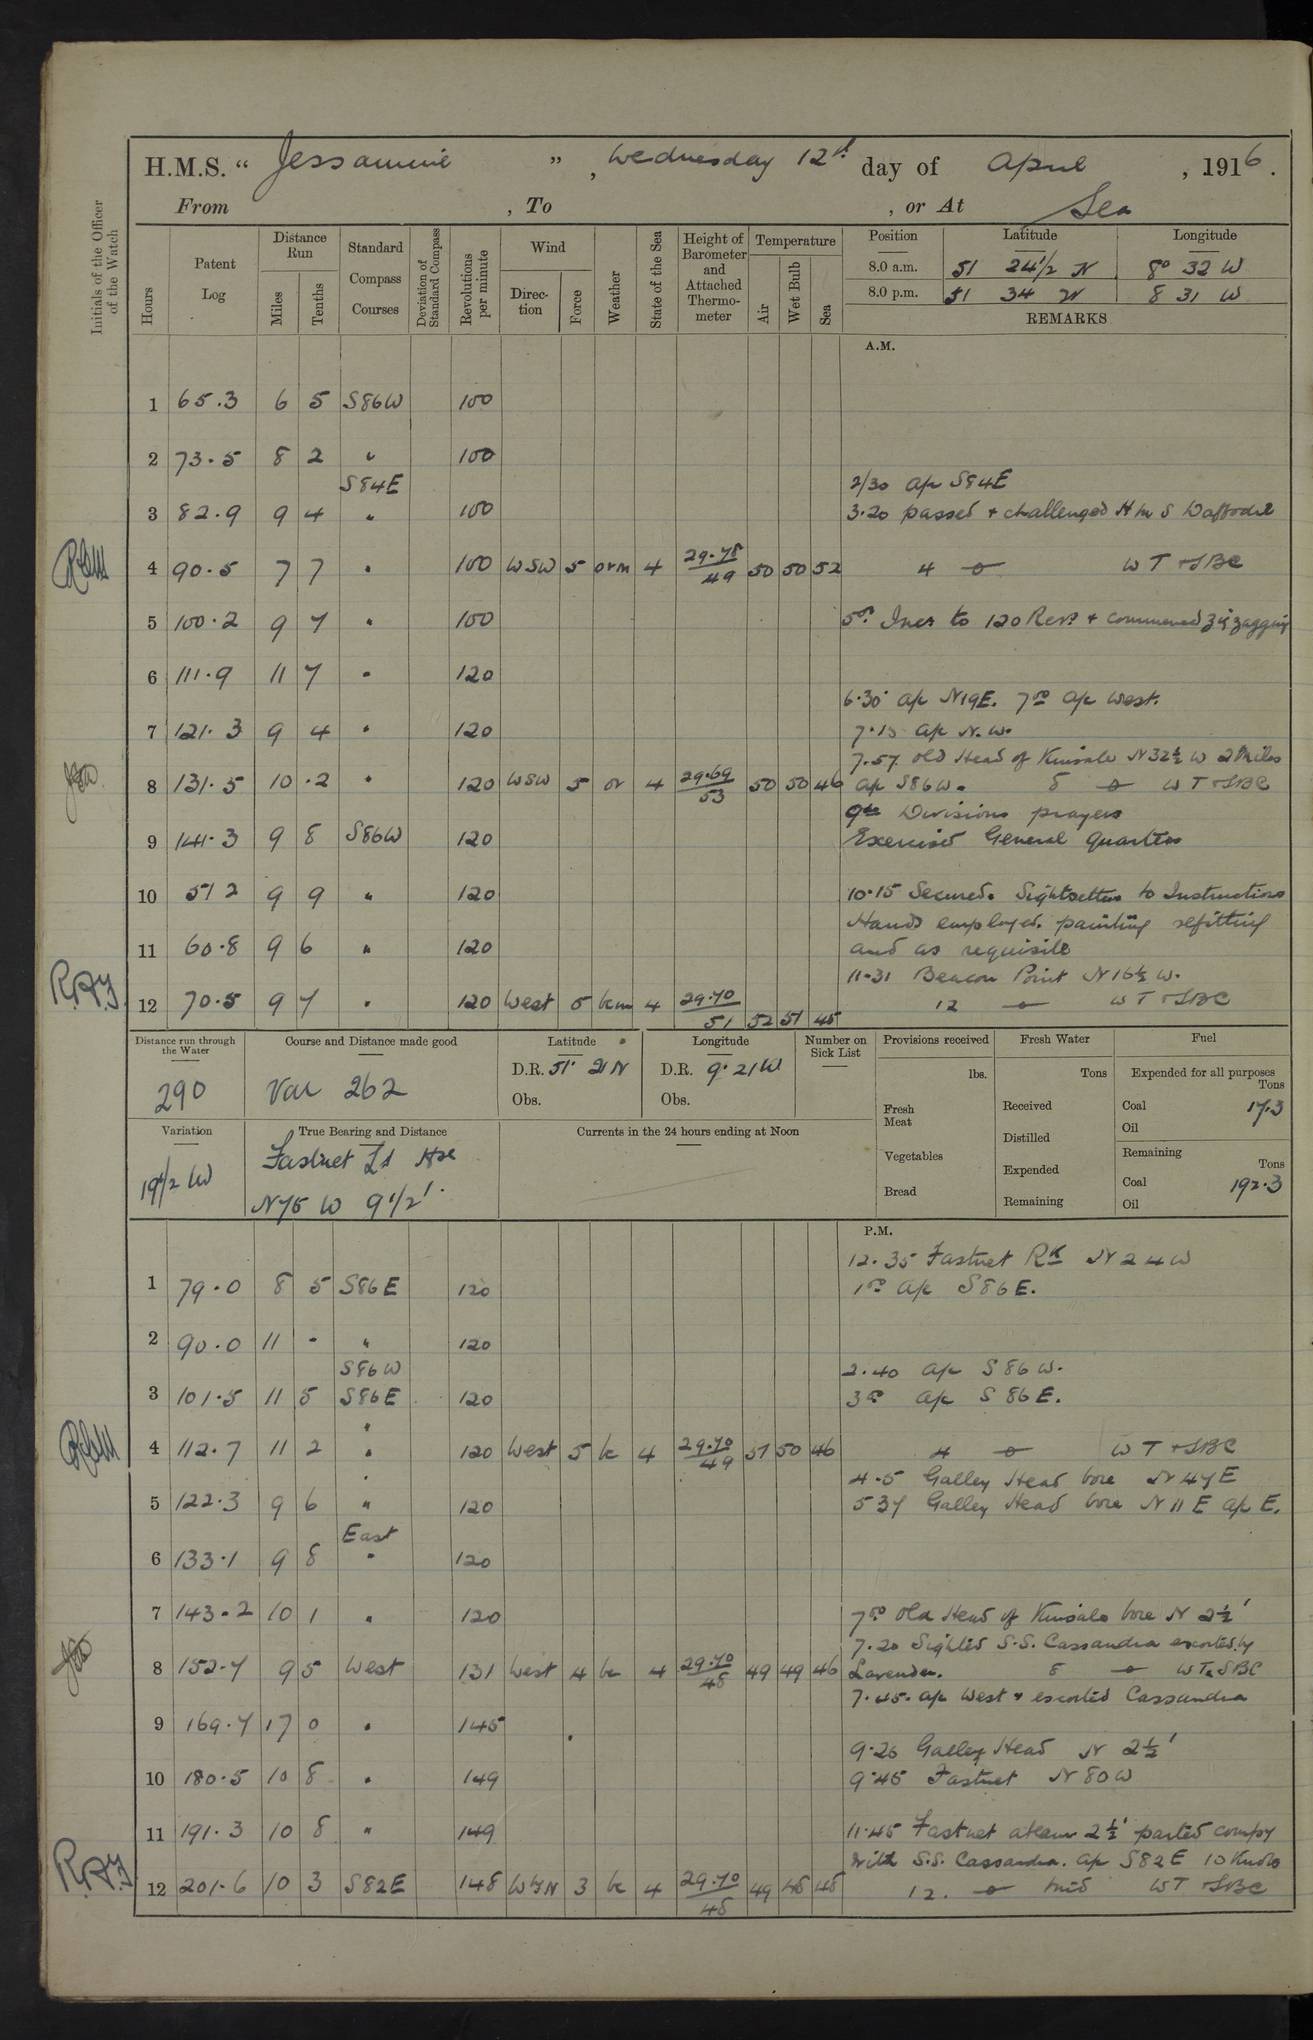 H.M.S. “ Jessamine ” , Wednesday 12th day of April , 1916 .
From , To , or At Sea
Initials of the Officer of the Watch
Hours Patent Log Distance Run Miles Tenths Standard Compass Courses Deviation of Standard Compass Revolutions per minute Wind Direction Force Weather State of the Sea Height of Barometer and Attached Thermometer Temperature Air Wet Bulb Sea Position Latitude Longitude
8.0 a.m. 51 24 1/2 N 8° 32 W
8.0 p.m. 51 34 N 8 31 W
REMARKS
A.M.
1 65.3 6 5 S86W 100
2 73.5 8 2 " 100
S84E 2/30 A/c S84E
3 82.9 9 4 " 100 3.20 passed + challenged H M S Daffodil
4 90.5 7 7 " 100 WSW 5 orm 4 29.78/49 50 50 52 4 W T + SBC
5 100.2 9 7 " 100 5.00 Incr to 120 Revs + commenced zigzagging
6 111.9 11 7 " 120
6.30 A/c N19E. 7.00 A/c West.
7 121.3 9 4 " 120 7.15 A/c N.W.
7.57 Old Head of Kinsale N32 1/2 W 2 Miles
8 131.5 10 .2 " 120 WSW 5 or 4 29.69/53 50 50 46 A/c S86W. 8 W T + SBC
9.00 Divisions prayers
9 141.3 9 8 S86W 120 Exercised General Quarters
10 51 2 9 9 " 120 10.15 Secured. Sightsetters to Instructions
Hands employed. painting refitting
11 60.8 9 6 " 120 and as requisite
11.31 Beacon Point N16 1/2 W.
12 70.5 9 7 " 120 West 5 bcm 4 29.70/51 52 51 45 12 W T + SBC
Distance run through the Water Course and Distance made good Latitude Longitude Number on Sick List Provisions received Fresh Water Fuel
290 Var 262 D.R. 51° 21 N D.R. 9° 21 W lbs. Tons Expended for all purposes Tons
Obs. Obs. Fresh Meat Received Coal 17.3
Oil
Variation True Bearing and Distance Currents in the 24 hours ending at Noon Distilled Remaining Tons
19 1/2 W Fastnet Lt Hse Vegetables Expended Coal 192.3
N75 W 9 1/2' Bread Remaining Oil
P.M.
12.35 Fastnet Rk N 24 W
1 79.0 8 5 S86E 120 1.00 A/c S86E.
2 90.0 11 - " 120
S86W 2.40 A/c S86W.
3 101.5 11 5 S86E 120 3.00 A/c S86E.
4 112.7 11 2 " 120 West 5 bc 4 29.70/49 51 50 46 4 W T + SBC
4.5 Galley Head bore N 47 E
5 122.3 9 6 " 120 5 37 Galley Head bore N 11 E A/c E.
East
6 133.1 9 8 " 120
7 143.2 10 1 " 120 7.00 Old Head of Kinsale bore N 2 1/2'
7.20 Sighted S.S. Cassandra escorted by
8 152.7 9 5 West 131 West 4 bc 4 29.70/48 49 49 46 Lavender. 8 W T & SBC
7.45. A/c West & escorted Cassandra
9 169.7 17 0 " 145
9.26 Galley Head N 2 1/2'
10 180.5 10 8 " 149 9.45 Fastnet N 80 W
11 191.3 10 8 " 149 11.45 Fastnet abeam 2 1/2' parted compy
with S.S. Cassandra. A/c S82E 10 Knots
12 201.6 10 3 S82E 148 WbyN 3 bc 4 29.70/48 49 48 48 12. Mid W T + SBC